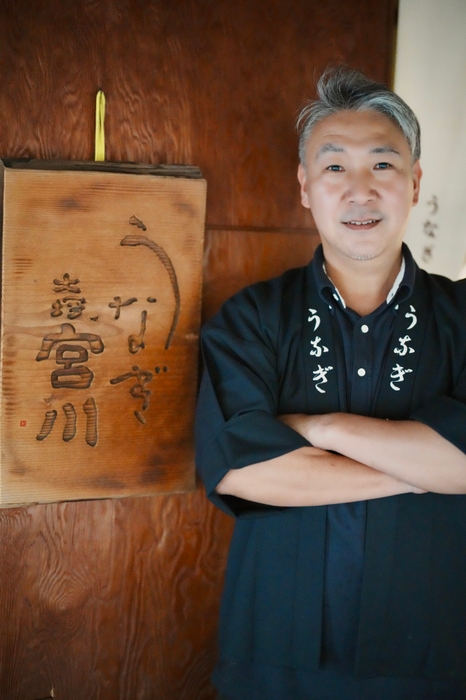 うなぎ
宮川
うなぎ
うなぎ
うなぎ